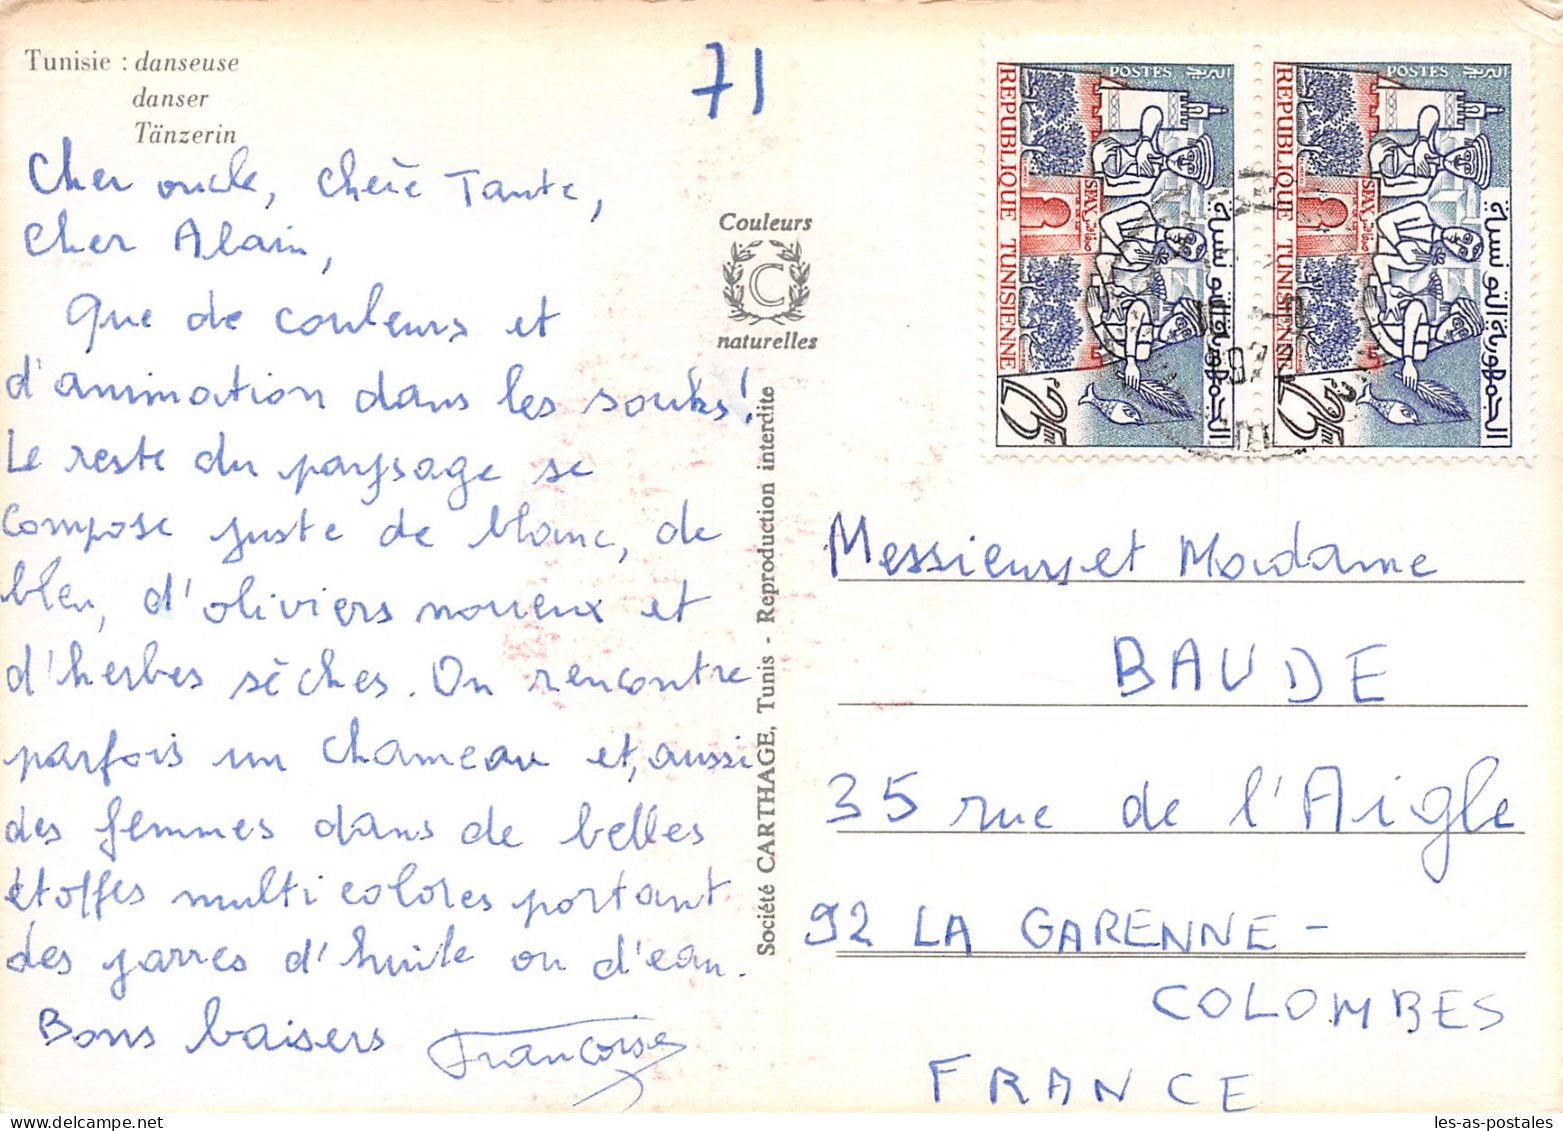 Tunisie : danseuse
danser
Tänzerin
71
Cher oncle, chère Tante,
Cher Alain,
Que de couleurs et
d'animation dans les souks!
Le reste du paysage se
compose juste de blanc, de
bleu, d'oliviers noueux et
d'herbes sèches. On rencontre
parfois un chameau et, aussi
des femmes dans de belles
étoffes multicolores portant
des jarres d'huile ou d'eau.
Bons baisers Françoise
Couleurs
C
naturelles
Société CARTHAGE, Tunis - Reproduction interdite
POSTES البريد
REPUBLIQUE TUNISIENNE
SFAX صفاقس
الجمهورية التونسية
25m
POSTES البريد
REPUBLIQUE TUNISIENNE
SFAX صفاقس
الجمهورية التونسية
25m
Messieurs et Madame
BAUDE
35 rue de l'Aigle
92 LA GARENNE -
COLOMBES
FRANCE
les-as-postales